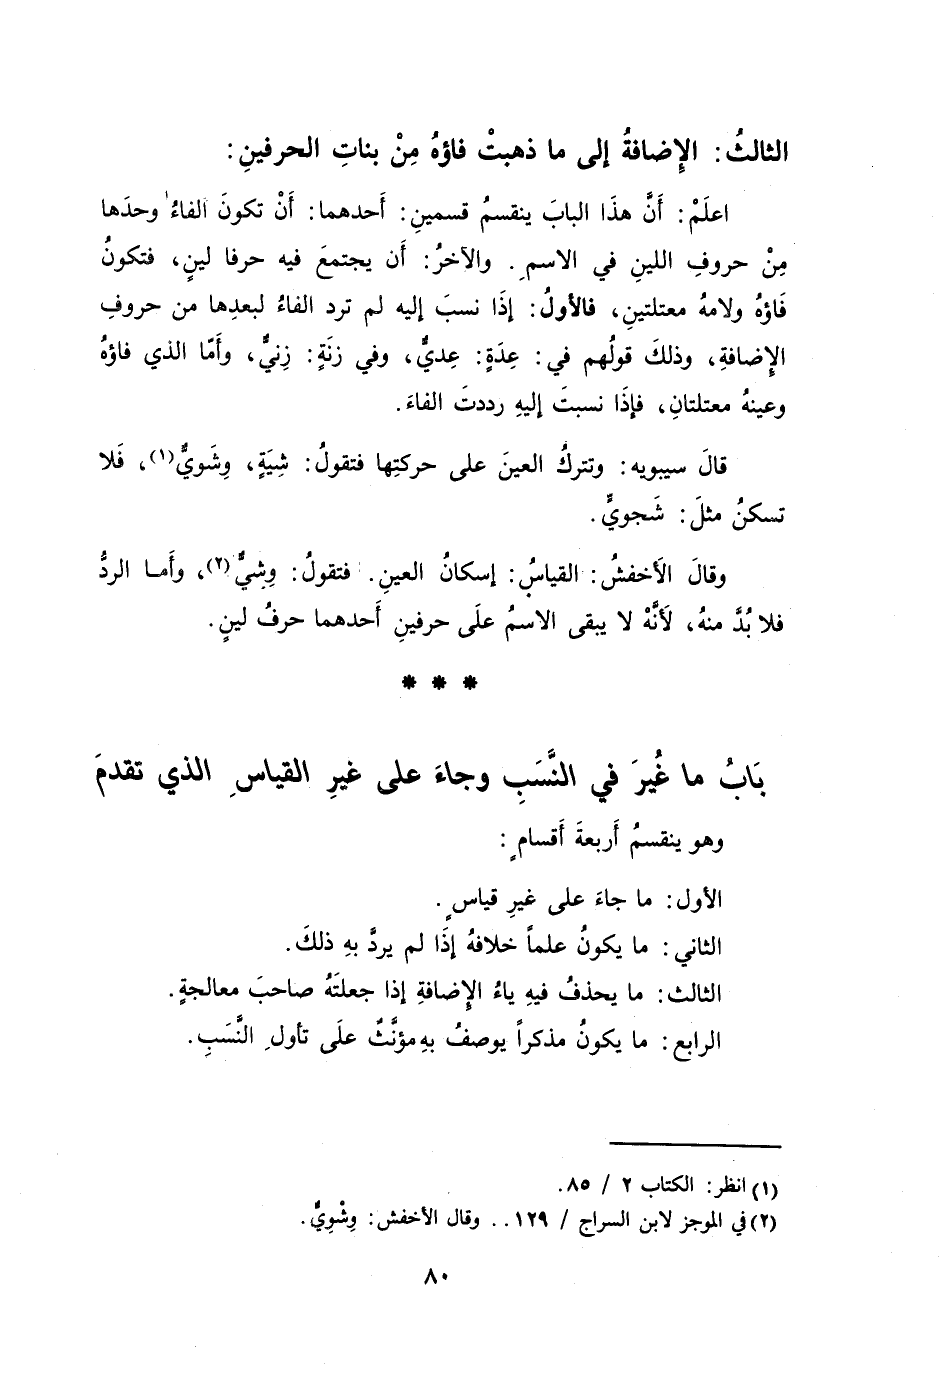 الثالثُ: الإِضافةُ إلى ما ذهبتْ فاؤهُ مِنْ بناتِ الحرفينِ:
اعلَمْ: أَنَّ هذَا البابَ ينقسمُ قسمينِ: أَحدهما: أَنْ تكونَ الفاءُ وحدَها
مِنْ حروفِ اللينِ في الاسمِ. والآخرُ: أَن يجتمعَ فيه حرفا لينٍ، فتكونُ
فَاؤهُ ولامهُ معتلتينِ، فالأولُ: إذَا نسبَ إليه لم ترد الفاءُ لبعدِها من حروفِ
الإِضافةِ، وذلكَ قولُهم في: عِدَةٍ: عِديٌّ، وفي زنَةٍ: زِنيٌّ، وأَمّا الذي فاؤهُ
وعينهُ معتلتانِ، فإذَا نسبتَ إليهِ رددتَ الفاءَ.
قالَ سيبويه: وتتركُ العينَ على حركتِها فتقولُ: شِيَةٍ، وِشَويٌّ(١)، فَلا
تسكنُ مثلَ: شَجويٍّ.
وقالَ الأَخفشُ: القياسُ: إسكانُ العينِ. فتقولُ: وِشِيٌّ(٢)، وأَما الردُّ
فلا بُدَّ منهُ، لأَنَّهْ لا يبقى الاسمُ علَى حرفينِ أَحدهما حرفُ لينٍ.
* * *
بَابُ ما غُيرَ في النَّسَبِ وجاءَ على غيرِ القياسِ الذي تقدمَ
وهو ينقسمُ أَربعةَ أَقسامٍ:
الأول: ما جاءَ على غيرِ قياسٍ.
الثاني: ما يكونُ علماً خلافهُ إذَا لم يردَّ بهِ ذلكَ.
الثالث: ما يحذفُ فيهِ ياءُ الإِضافةِ إذا جعلتَهُ صاحبَ معالجةٍ.
الرابع: ما يكونُ مذكراً يوصفُ بهِ مؤنَّثٌ علَى تأولِ النَّسَبِ.
(١) انظر: الكتاب ٢ / ٨٥.
(٢) في الموجز لابن السراج / ١٢٩.. وقال الأخفش: وِشْوِيٌّ.
٨٠